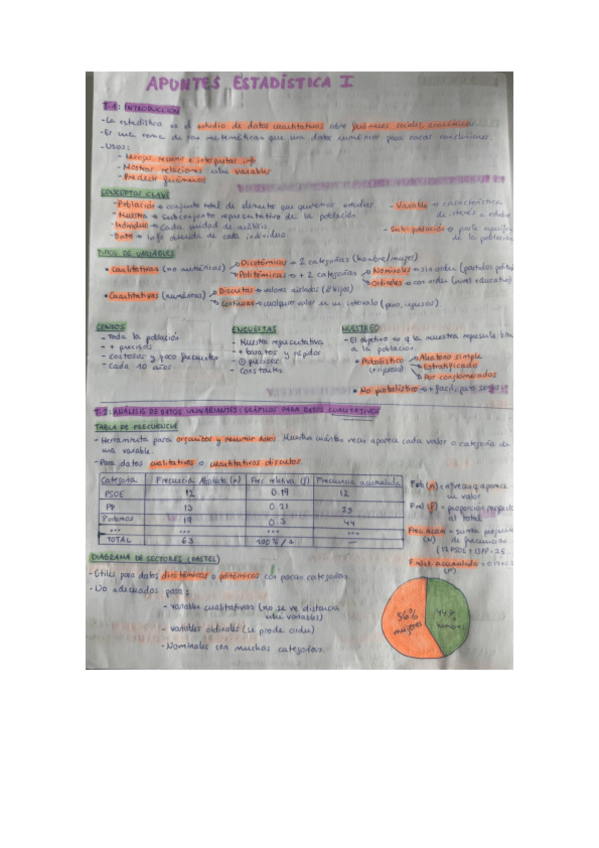 APUNTES ESTADÍSTICA I
T-1: INTRODUCCIÓN
- La estadística es el estudio de datos cuantitativos sobre fenómenos sociales, económicos.
- Es una rama de las matemáticas que usa datos numéricos para sacar conclusiones.
- Usos:
- Recoger, resumir e interpretar info
- Mostrar relaciones entre variables
- Predecir fenómenos
CONCEPTOS CLAVE
- Población → conjunto total de elementos que queremos estudiar
- Muestra → subconjunto representativo de la población
- Individuo → cada unidad de análisis
- Dato → info obtenida de cada individuo
- Variable → característica
de interés a estudiar
- Subpoblación → parte
de la población
TIPOS DE VARIABLES
• Cualitativas (no numéricas) → Dicotómicas → 2 categorías (hombre/mujer)
→ Politómicas → + 2 categorías → Nominales → sin orden (partidos
→ Ordinales → con orden (nivel educativo)
• Cuantitativas (numéricas) → Discretas → valores aislados (2 hijos)
→ Continuas → cualquier valor en un intervalo (peso, ingresos)
CENSOS
- Toda la población
- + precisos
- costosos y poco frecuentes
- Cada 10 años
ENCUESTAS
- Muestra representativa
- + baratos y rápidos
- ⊖ precisos
- Constantes
MUESTREO
- El objetivo es q la muestra represente bien
a la población.
• Probabilístico → Aleatorio simple
(+ riguroso) → Estratificado
→ Por conglomerados
• No probabilístico → + fácil, pero sesgo
T-2: ANÁLISIS DE DATOS UNIVARIANTES: GRÁFICOS PARA DATOS CUALITATIVOS
TABLA DE FRECUENCIA
- Herramienta para organizar y resumir datos. Muestra cuántas veces aparece cada valor o categoría de
una variable.
- Para datos cualitativos o cuantitativos discretos
Categoría Frecuencia Absoluta (n) Frec relativa (f) Frecuencia acumulada
PSOE 12 0.19 12
PP 13 0.21 25
Podemos 19 0.3 44
... ... ... ...
TOTAL 63 100% / 1 —
F.ab (n) = nº veces q aparece
un valor
F.rel (f) = proporción respecto
al total
Frec. acum = suma
(N) de frecuencias
(12 PSOE + 13 PP = 25
F. relat. acumulada =
(F)
DIAGRAMA DE SECTORES (PASTEL)
- Útiles para datos dicotómicos o politómicos con pocas categorías.
- No adecuados para:
- variables cuantitativas (no se ve distancia
entre variables)
- variables ordinales (se pierde orden)
- Nominales con muchas categorías.
56%
mujeres
44%
hombres